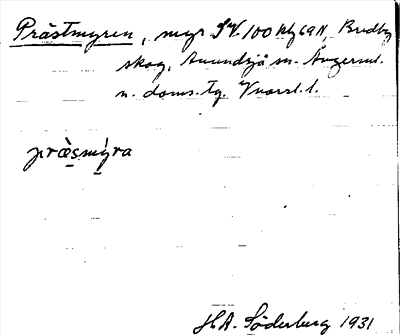 Prästmyren, myr SV. 100 kbg 69 N Bredby
skog, Anundsjö sn. Ångerml.
n. doms. Tg.
præ̀smýra
H.A. Söderberg 1931